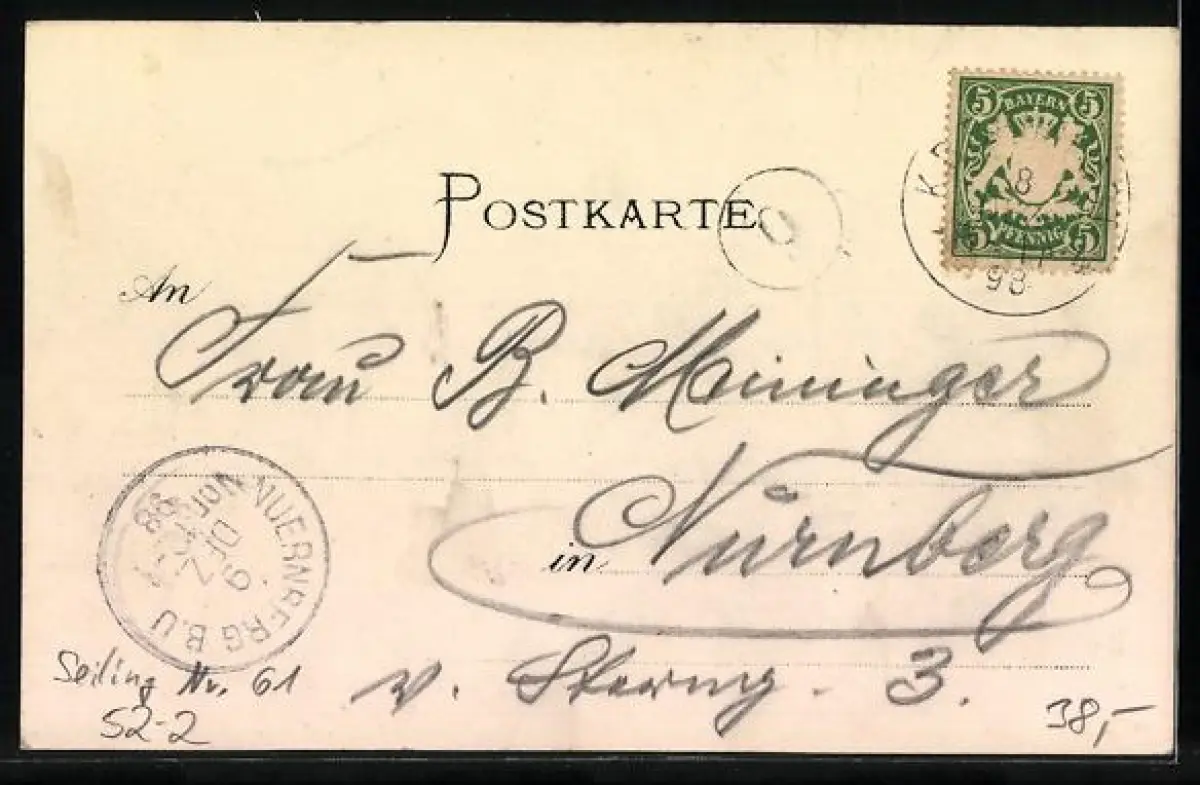 5 BAYERN 5
5 PFENNIG 5
8
98
POSTKARTE
An
Frau B. Meininger
in Nürnberg
v. Sterng. 3.
NUERNBERG B.U
9 DEZ
Vor
98
Seiling Nr. 61
S2-2
38,-